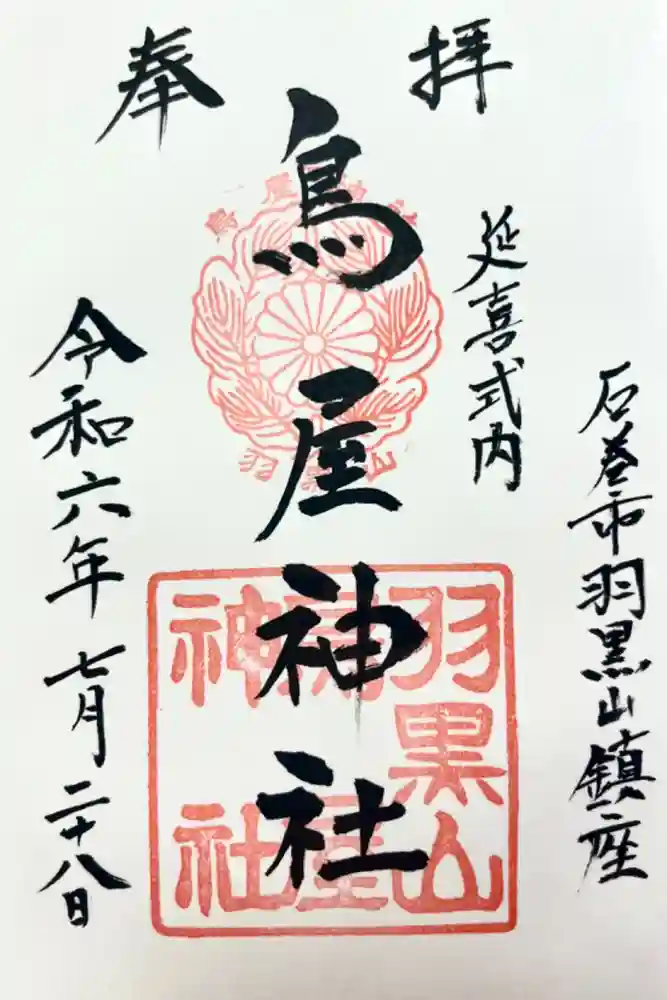 奉拝
石巻市羽黒山鎮座
延喜式内
鳥屋神社
令和六年七月二十八日
羽黒山
鳥屋
神社